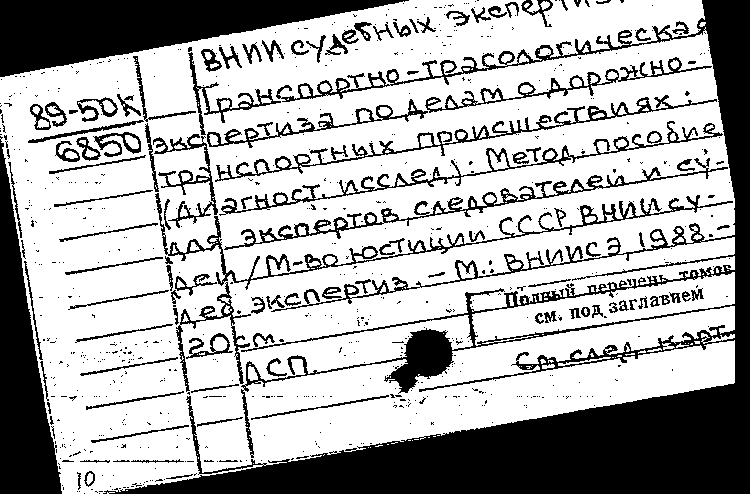 ВНИИ судебных экспертиз.
89-50к
6850
Транспортно-трасологическая
экспертиза по делам о дорожно-
транспортных происшествиях:
(Диагност. исслед.): Метод. пособие
для экспертов, следователей и су-
дей / М-во юстиции СССР, ВНИИ су-
деб. экспертиз. – М.: ВНИИСЭ, 1988. –
20 см.
Полный перечень томов
см. под заглавием
ДСП.
См. след. карт.
10